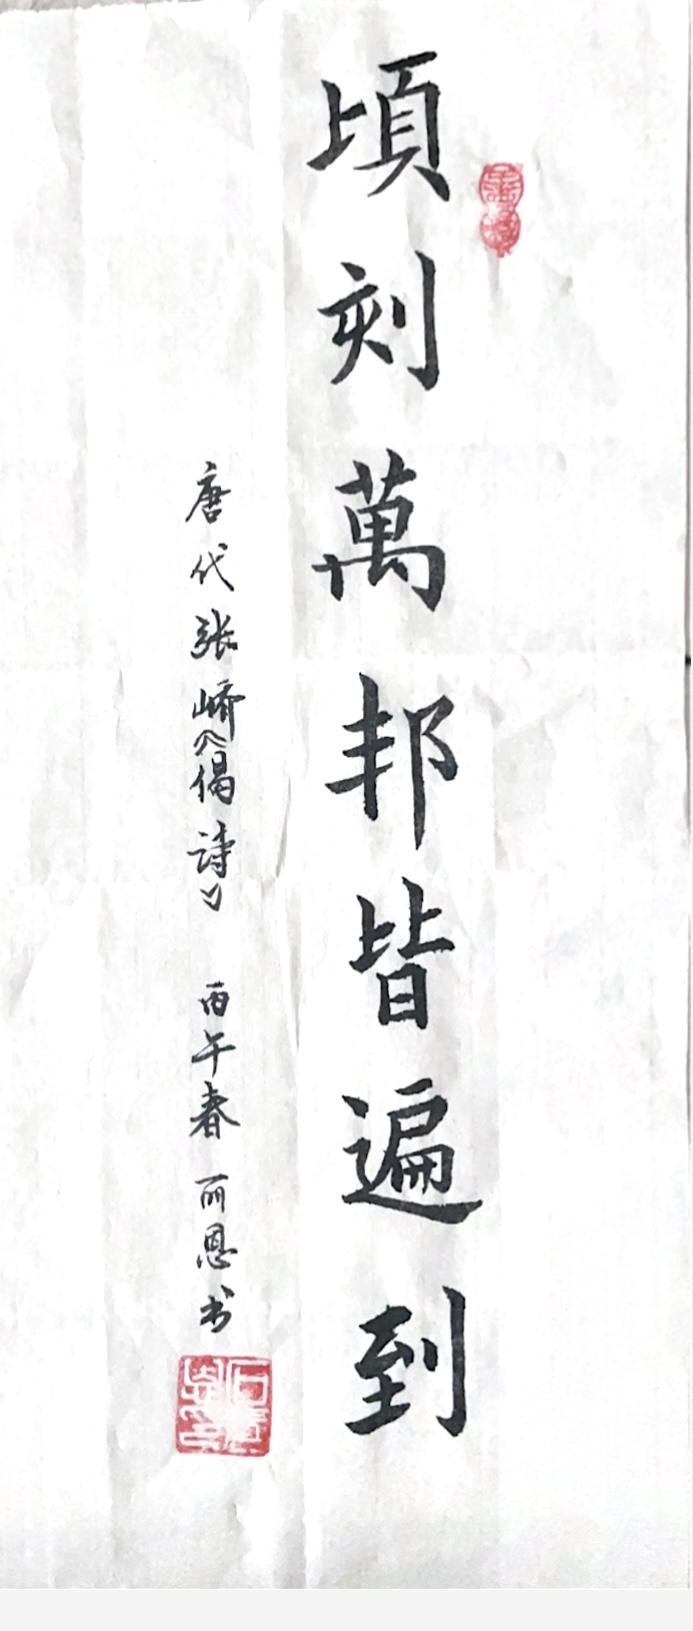 頃刻萬邦皆遍到
唐代张嶠《偈诗》 丙午春 丽恩书